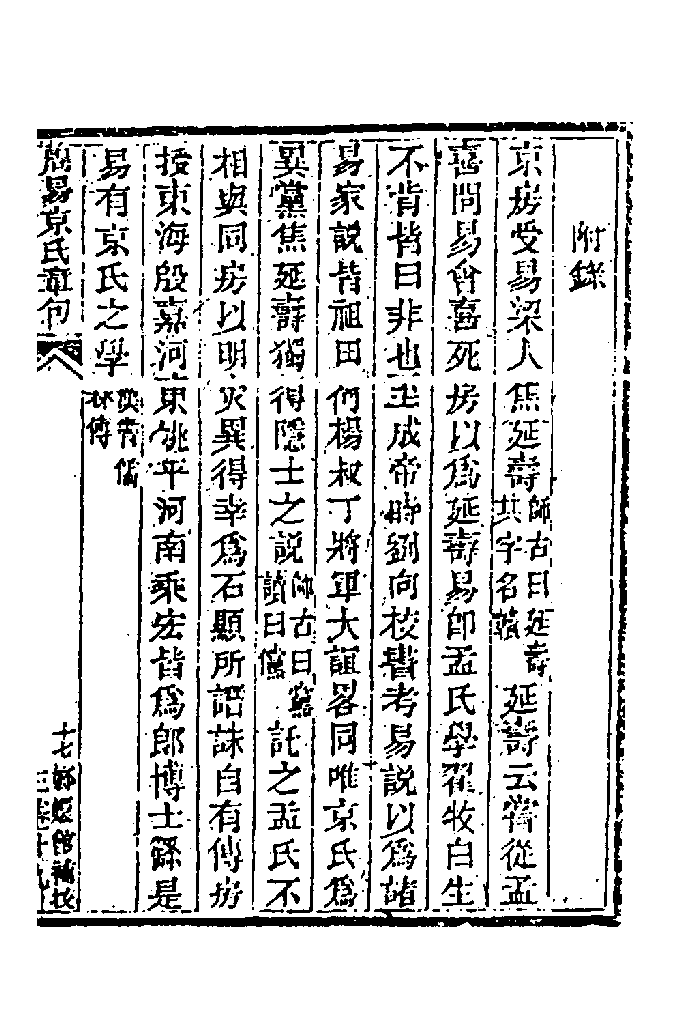 附錄
京房受易梁人焦延壽師古曰延壽其字名贛延壽云嘗從孟
喜問易會喜死房以爲延壽易卽孟氏學翟牧白生
不肯皆曰非也至成帝時劉向校書考易說以爲諸
易家說皆祖田何楊叔丁將軍大誼畧同唯京氏爲
異黨焦延壽獨得隱士之說師古曰黨讀曰儻託之孟氏不
相與同房以明灾異得幸爲石顯所譖誅自有傳房
授東海殷嘉河東姚平河南乘宏皆爲郎博士繇是
易有京氏之學漢書儒林傳
周易京氏章句
十七 嫏嬛館補校